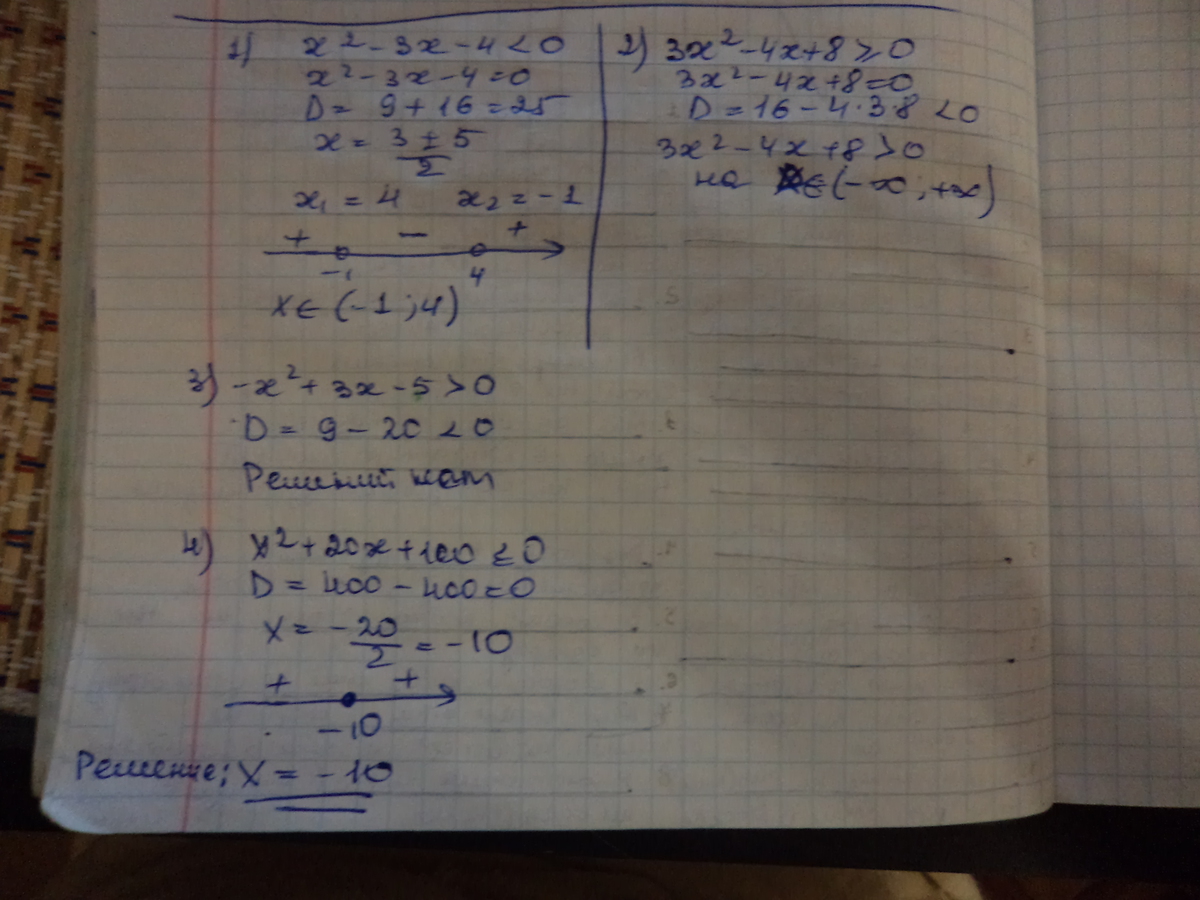 1) x² - 3x - 4 < 0
x² - 3x - 4 = 0
D = 9 + 16 = 25
x = 3 ± 5 / 2
x₁ = 4 x₂ = -1
+ - +
-1 4
x ∈ (-1; 4)
2) 3x² - 4x + 8 ≥ 0
3x² - 4x + 8 = 0
D = 16 - 4·3·8 < 0
3x² - 4x + 8 > 0
на ∈ (-∞; +∞)
3) -x² + 3x - 5 > 0
D = 9 - 20 < 0
Решений нет
4) x² + 20x + 100 ≤ 0
D = 400 - 400 = 0
x = -20/2 = -10
+ +
-10
Решение: x = -10